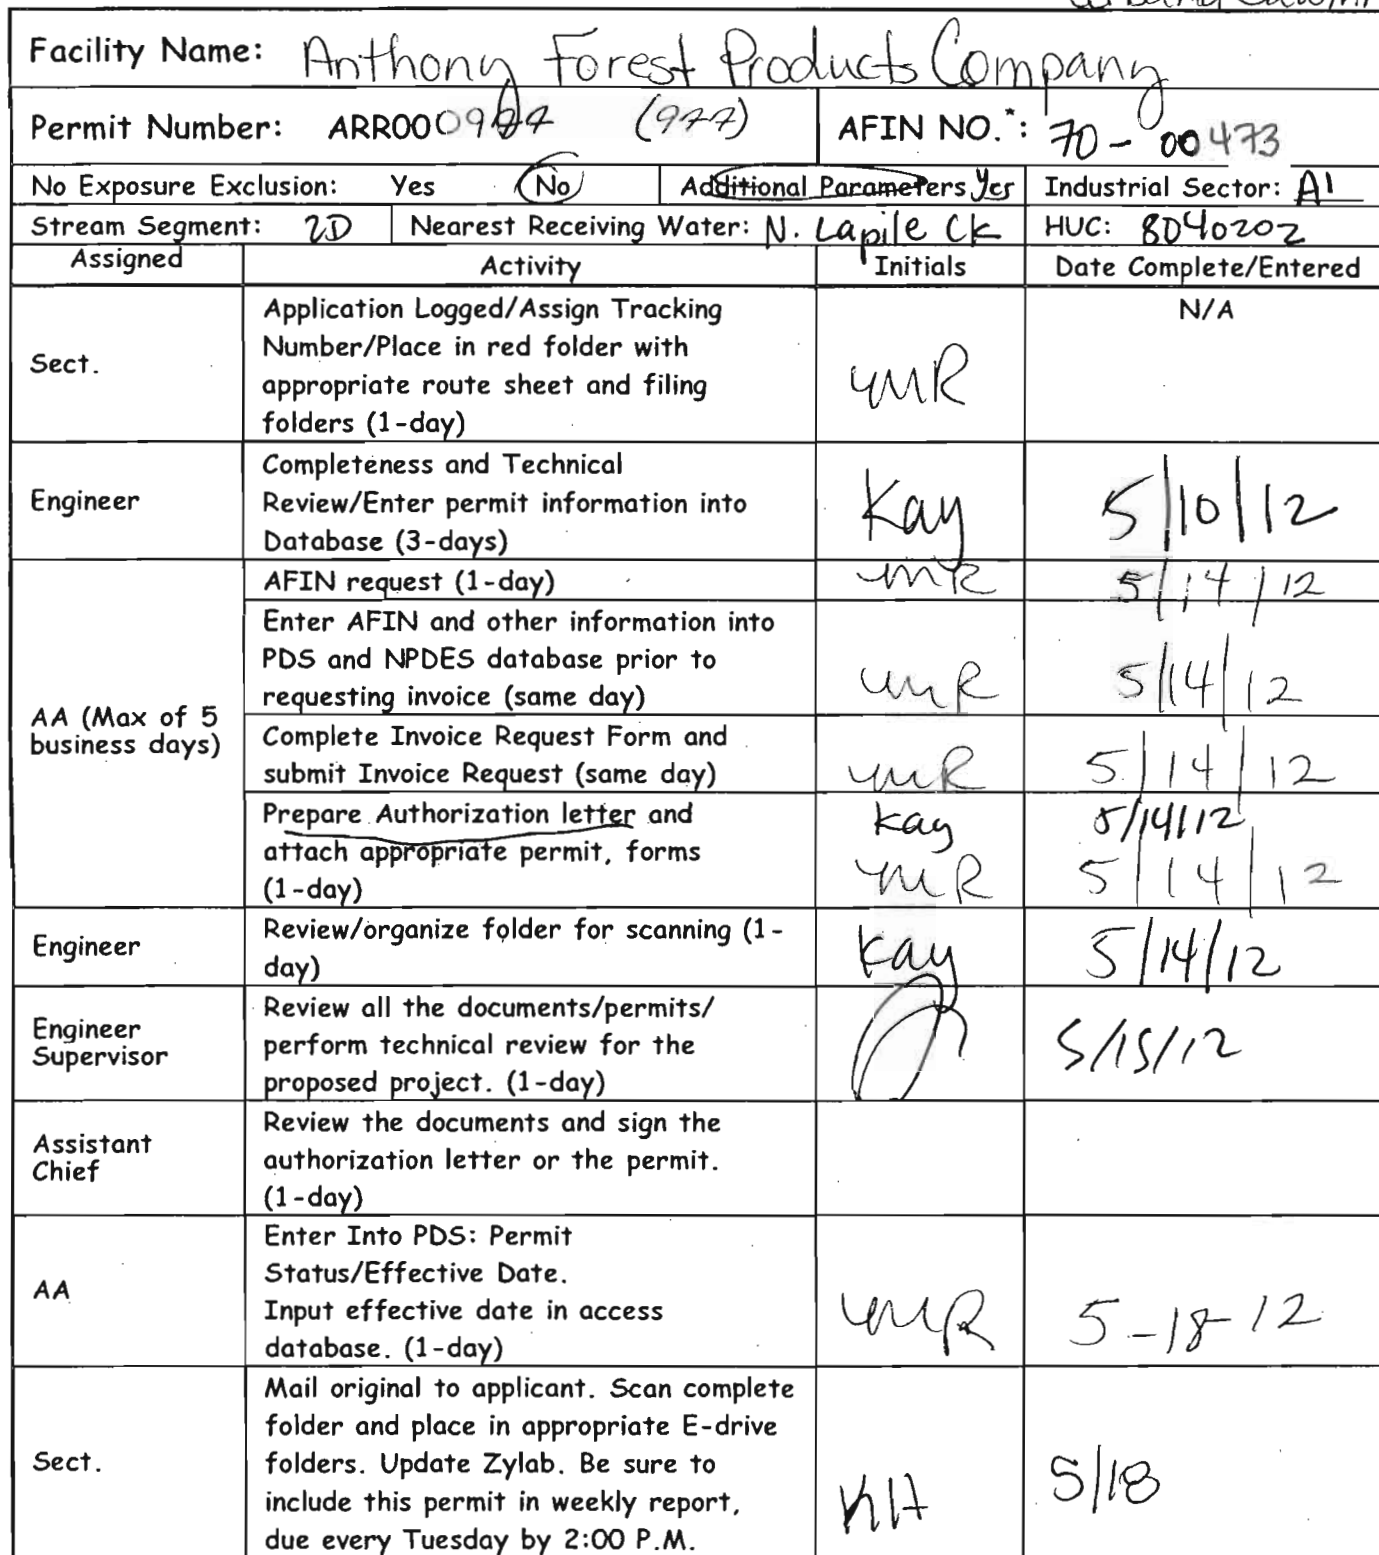 Facility Name: Anthony Forest Products Company
Permit Number: ARR000974 (977) AFIN NO.*: 70-00473
No Exposure Exclusion: Yes No Additional Parameters Yes Industrial Sector: A1
Stream Segment: 2D Nearest Receiving Water: N. Lapile Ck HUC: 8040202
Assigned Activity Initials Date Complete/Entered
Application Logged/Assign Tracking N/A
Number/Place in red folder with
Sect. appropriate route sheet and filing YMR
folders (1-day)
Completeness and Technical
Engineer Review/Enter permit information into Kay 5/10/12
Database (3-days)
AFIN request (1-day) YMR 5/14/12
Enter AFIN and other information into
PDS and NPDES database prior to
requesting invoice (same day) YMR 5/14/12
AA (Max of 5
business days)
Complete Invoice Request Form and
submit Invoice Request (same day) YMR 5/14/12
Prepare Authorization letter and Kay 5/14/12
attach appropriate permit, forms
(1-day) YMR 5/14/12
Engineer Review/organize folder for scanning (1- Kay 5/14/12
day)
Review all the documents/permits/
Engineer
Supervisor perform technical review for the 5/15/12
proposed project. (1-day)
Review the documents and sign the
Assistant
Chief authorization letter or the permit.
(1-day)
Enter Into PDS: Permit
Status/Effective Date.
AA Input effective date in access YMR 5-18-12
database. (1-day)
Mail original to applicant. Scan complete
folder and place in appropriate E-drive
Sect. folders. Update Zylab. Be sure to KH 5/18
include this permit in weekly report,
due every Tuesday by 2:00 P.M.